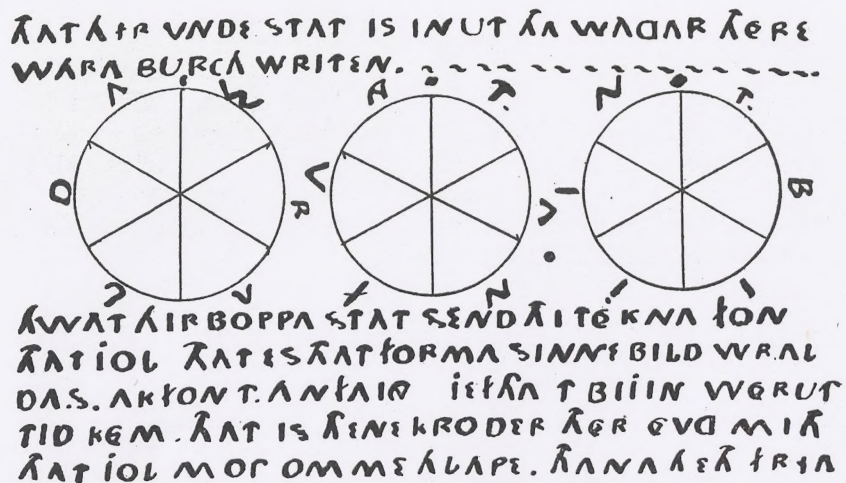 THAT HIR VNDE STAT IS IN UT THA WAGAR THÉRE
WÁRA BURCH WRITEN.
W R A L D A
T. A N F A NG
T. B I I I N
HWAT HIR BOPPA STAT SEND THI TÉKNA FON
THAT IOL THAT ES THAT FORMA SINNEBILD WR.AL
DA.S. AK FON T. ANFANG IEFTHA T BIIIN WÉRUT
TID KÉM. THAT IS THENE KRODER THÉR ÉVG MITH
THAT IOL MOT OMME HLAPE. THANA HETH FRYA